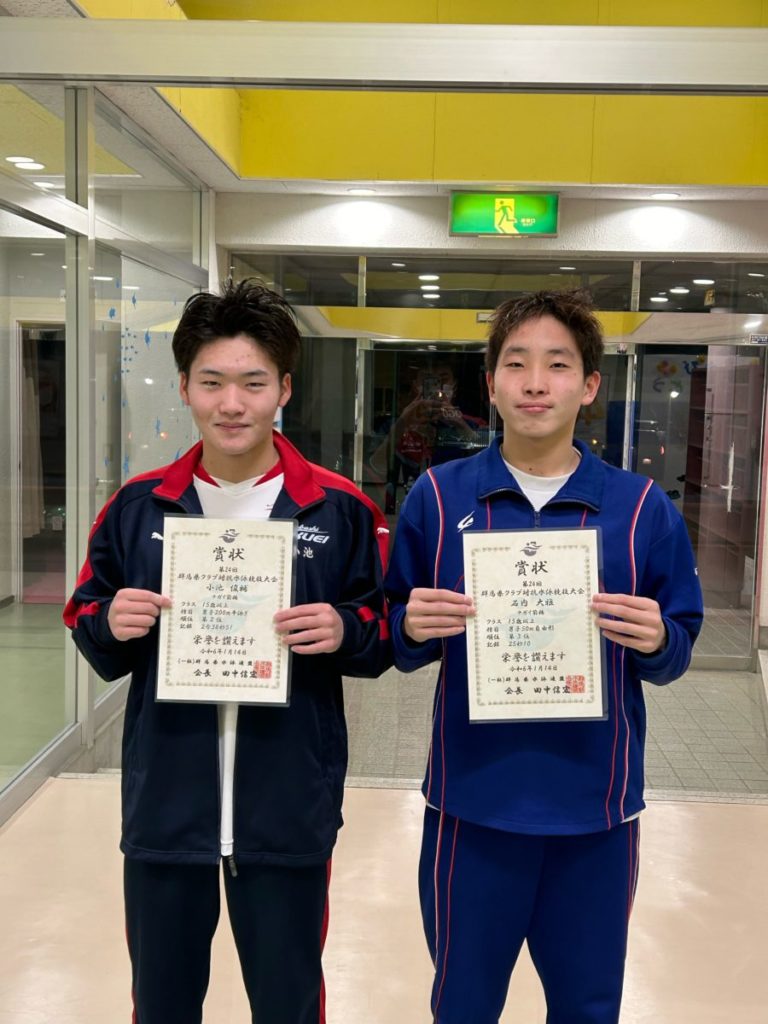 非常口
賞状
第24回
群馬県クラブ対抗水泳競技大会
小池 俊輔
クラス 15歳以上
種目 男子200m平泳ぎ
順位 第2位
栄誉を讃えます
令和6年1月14日
(一社)群馬県水泳連盟
会長 田中信宏
小池
賞状
第24回
群馬県クラブ対抗水泳競技大会
石内 大翔
クラス 15歳以上
種目 男子50m自由形
順位 第3位
記録 25秒10
栄誉を讃えます
令和6年1月14日
(一社)群馬県水泳連盟
会長 田中信宏